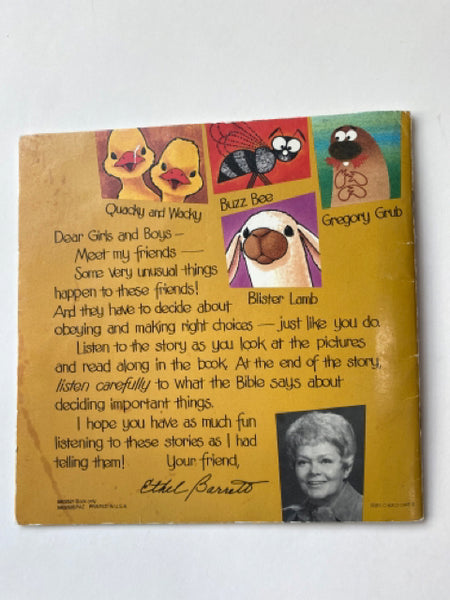 Quacky and Wacky
Buzz Bee
Gregory Grub
Blister Lamb
Dear Girls and Boys –
Meet my friends —
Some very unusual things
happen to these friends!
And they have to decide about
obeying and making right choices — just like you do.
Listen to the story as you look at the pictures
and read along in the book. At the end of the story,
listen carefully to what the Bible says about
deciding important things.
I hope you have as much fun
listening to these stories as I had
telling them! Your friend,
Ethel Barrett
Book only